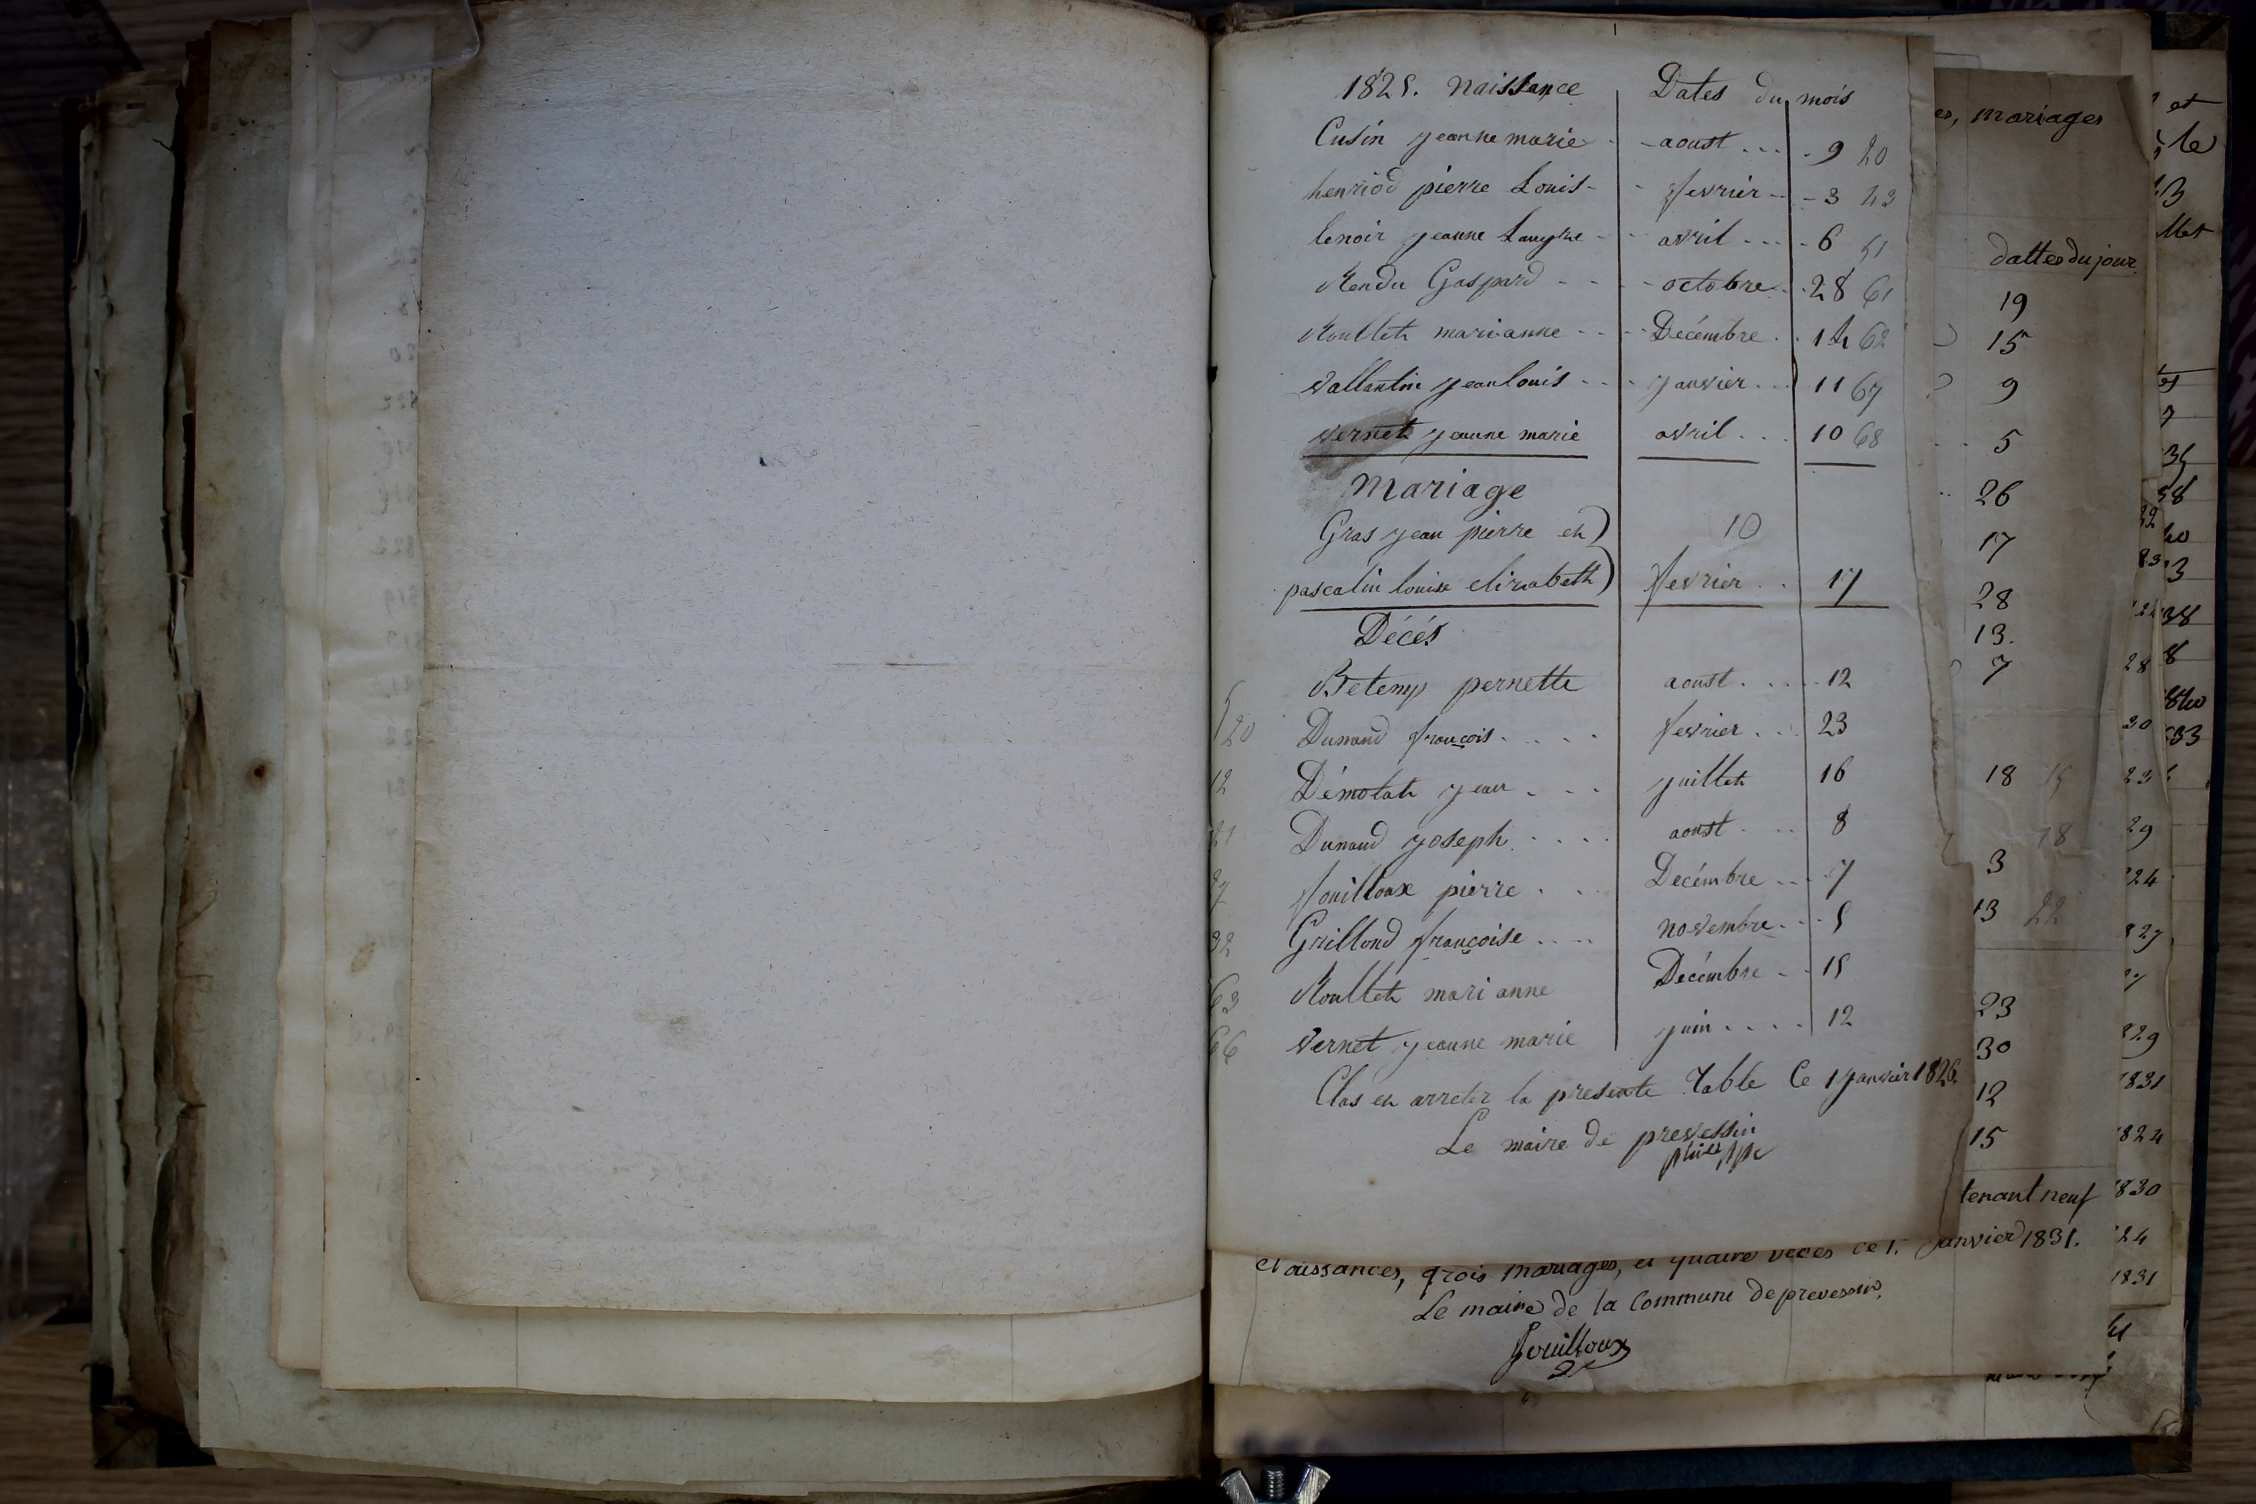 1825. Naissance Dates du mois
Cusin jeanne marie - aoust .... 9 20
henriod pierre Louis - fevrier - 3 23
lenoir jeanne - avril .... 6 51
Rendu Gaspard - octobre . 28 61
Roullet marianne - Decémbre . 14 62
Vallantin jean louis - janvier ... 11 67
Vernet jeanne marie avril ... 10 68
Mariage
Gras jean pierre et) 10
pascalin louise elizabeth) fevrier .. 17
Décés
5 Betemps pernette aoust ..... 12
20 Dunand françois ..... fevrier ... 23
12 Démolat jean . . . juillet 16
21 Dunand joseph ..... aoust ... 8
27 fouilloux pierre . . . Decémbre ... 7
32 Grillond françoise .... novembre ... 5
63 Roullet mari anne Decémbre - 15
66 Vernet jeanne marie juin ..... 12
Clos et arreter la presente Table Ce 1 janvier 1826.
Le maire de prevessin
es, mariages
dattes du jour
19
15
9
5
26
17
28
13.
7
18 15
18
3
13 22
23
30
12
15
tenant neuf
Naissances, trois mariages, et quatre décès ce 1. Janvier 1831.
Le maire de la Commune de prevessin.
fouilloux